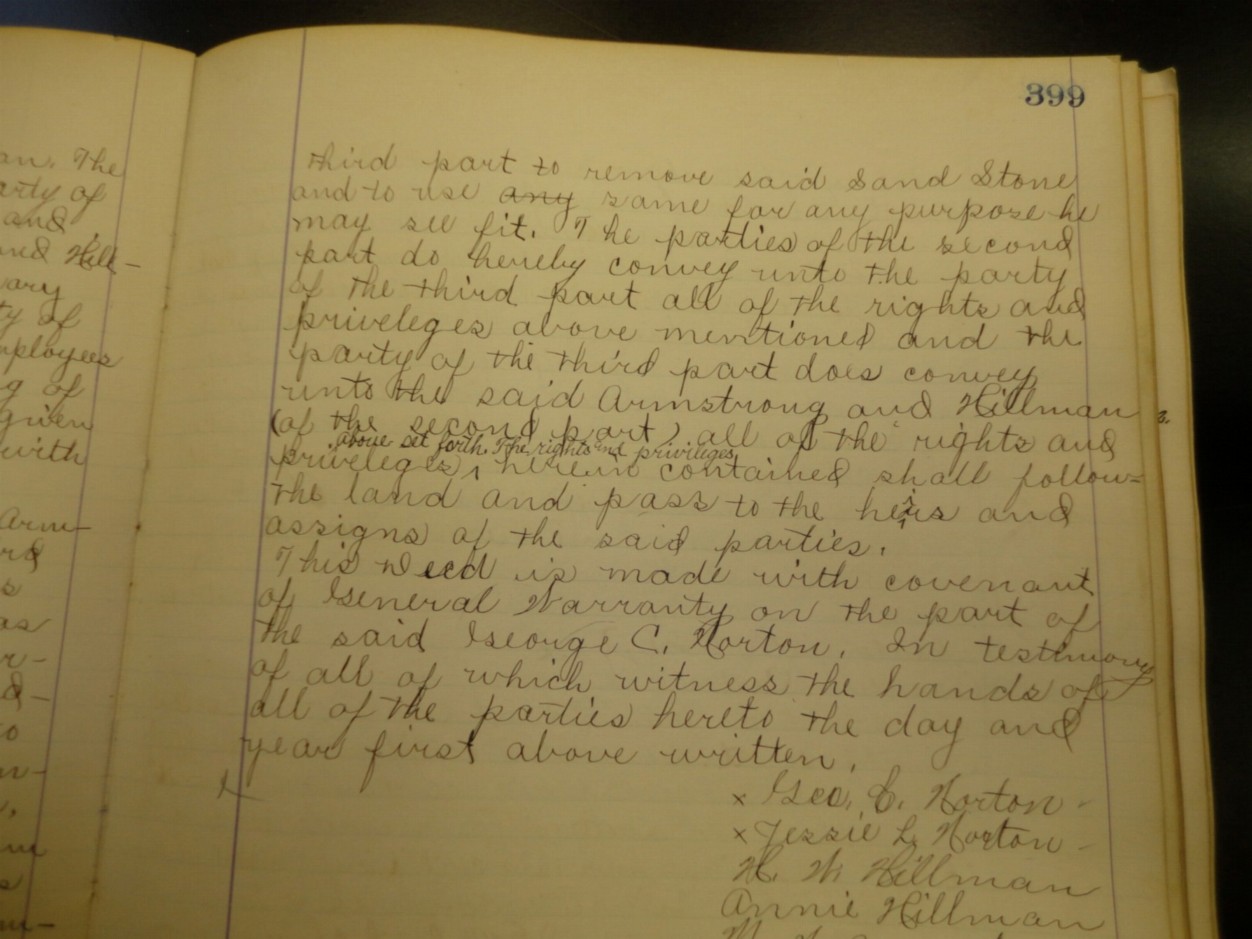 an. The
arty of
and
and Hill-
vary
ty of
mployees
g of
given
with
Arm-
rd
s
as
r-
d-
to
n-
m
s
m-
399
third part to remove said Sand Stone
and to use any same for any purpose he
may see fit. The parties of the second
part do hereby convey unto the party
of the third part all of the rights and
priveleges above mentioned and the
party of the third part does convey
unto the said Armstrong and Hillman
(of the second part) all of the rights and
above set forth. The rights and privileges
priveleges, herein contained shall follow-
the land and pass to the heirs and
assigns of the said parties.
This Deed is made with covenant
of General Warranty on the part of
the said George C. Norton. In testimony
of all of which witness the hands of
all of the parties hereto the day and
year first above written.
x Geo. C. Norton -
x Jessie L. Norton -
H. W. Hillman
Annie Hillman